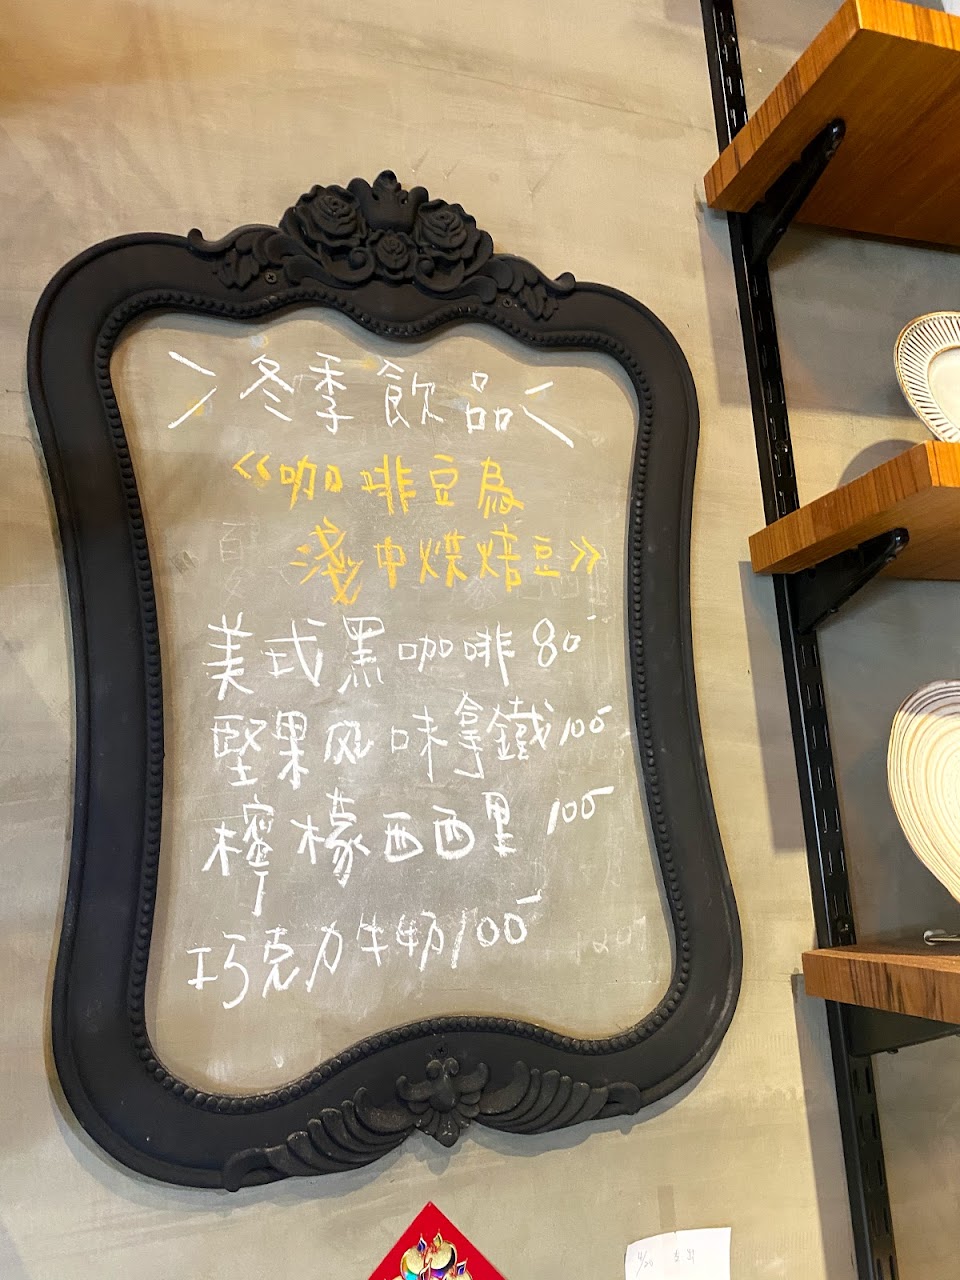 ＞冬季飲品＜
《咖啡豆為
淺中烘焙豆》
美式黑咖啡 80-
堅果风味拿鐵 100-
檸檬西西里 100-
巧克力牛奶 100-